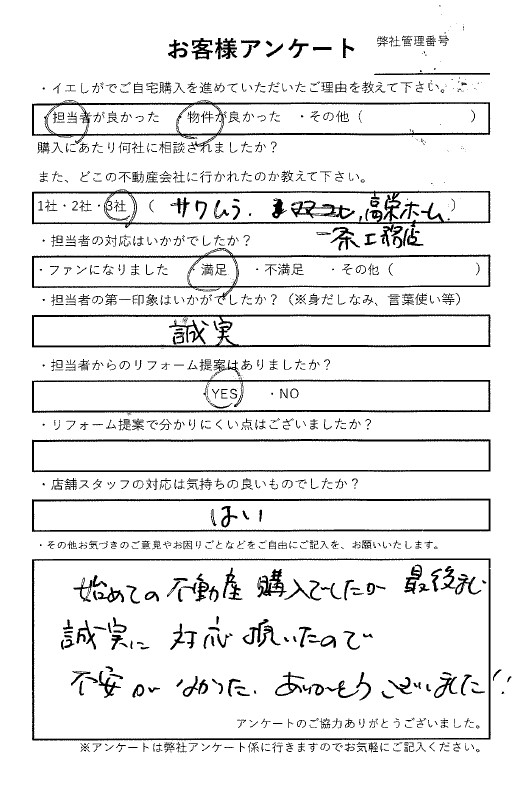 お客様アンケート
弊社管理番号
・イエしがでご自宅購入を進めていただいたご理由を教えて下さい。
・担当者が良かった ・物件が良かった ・その他（ ）
購入にあたり何社に相談されましたか？
また、どこの不動産会社に行かれたのか教えて下さい。
1社・2社・3社 （ サワムラ . 高栄ホーム. ）
一条工務店
・担当者の対応はいかがでしたか？
・ファンになりました ・満足 ・不満足 ・その他（ ）
・担当者の第一印象はいかがでしたか？（※身だしなみ、言葉使い等）
誠実
・担当者からのリフォーム提案はありましたか？
・YES ・NO
・リフォーム提案で分かりにくい点はございましたか？
・店舗スタッフの対応は気持ちの良いものでしたか？
はい
・その他お気づきのご意見やお困りごとなどをご自由にご記入を、お願いいたします。
始めての不動産購入でしたが 最後まで
誠実に 対応 頂いたので
不安がなかった. ありがとうございました!!
アンケートのご協力ありがとうございました。
※アンケートは弊社アンケート係に行きますのでお気軽にご記入ください。